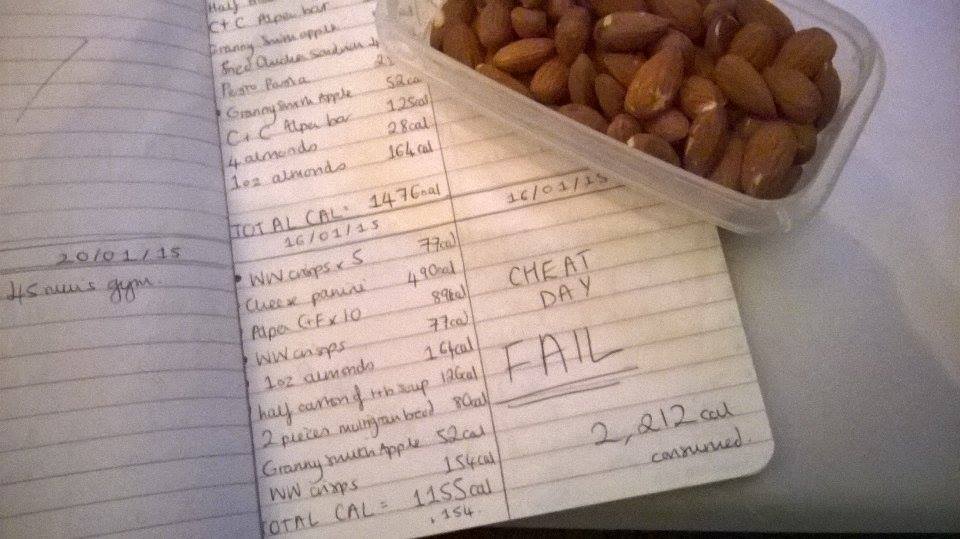 20/01/15
45 mins gym.
Half
C+C Alpen bar
Granny Smith apple
Chicken Sandwich
Pesto Pasta
Granny Smith Apple 52cal
C+C Alpen bar 125cal
4 almonds 28cal
1oz almonds 164cal
TOTAL CAL: 1476cal
16/01/15
WW crisps x 5 77cal
Cheese panini 490cal
Alpen C+F x 10 89cal
WW crisps 77cal
1oz almonds 164cal
half carton of t+b soup 126cal
2 pieces multigrain bread 80cal
Granny Smith Apple 52cal
WW crisps 154cal
TOTAL CAL = 1155cal
.154.
16/01/15
CHEAT
DAY
FAIL
2,212 cal
consumed.